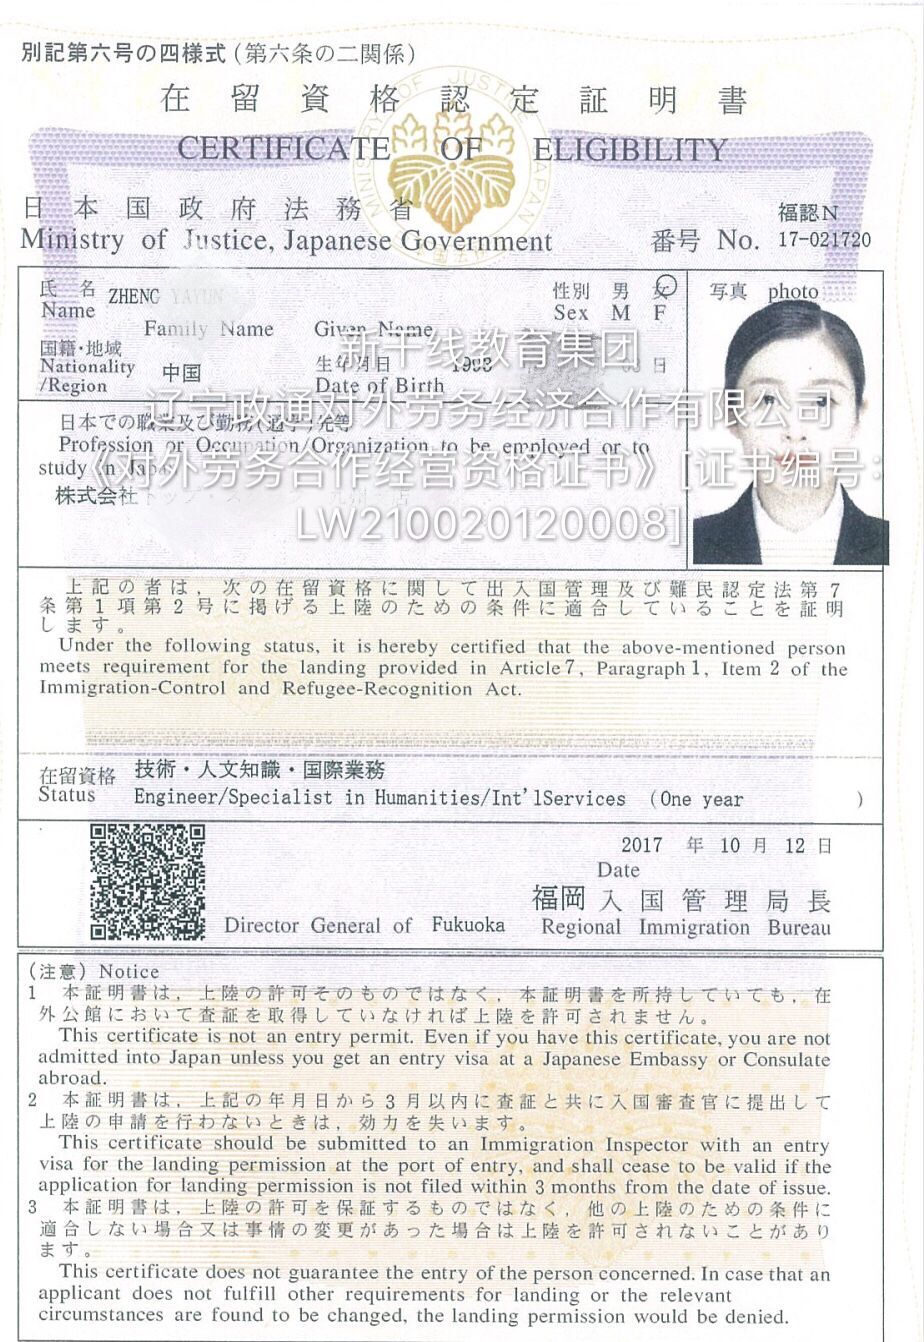 別記第六号の四様式(第六条の二関係)
在留資格認定証明書
CERTIFICATE OF ELIGIBILITY
MINISTRY OF JUSTICE JAPAN
日本国政府法務省
Ministry of Justice, Japanese Government
福認N
番号 No. 17-021720
氏名 ZHENG YAYUN
Name
Family Name Given Name
性別 男 女
Sex M F
写真 photo
国籍・地域
Nationality
/Region
中国
生年月日 1993 日
Date of Birth
新干线教育集团
辽宁政通对外劳务经济合作有限公司
《对外劳务合作经营资格证书》[证书编号:
LW210020120008]
日本での職業及び勤務(通学)先等
Profession or Occupation/Organization to be employed or to
study in Japan
株式会社
上記の者は,次の在留資格に関して出入国管理及び難民認定法第7
条第1項第2号に掲げる上陸のための条件に適合していることを証明
します。
Under the following status, it is hereby certified that the above-mentioned person
meets requirement for the landing provided in Article 7, Paragraph 1, Item 2 of the
Immigration-Control and Refugee-Recognition Act.
在留資格 技術・人文知識・国際業務
Status Engineer/Specialist in Humanities/Int'lServices (One year )
2017 年 10 月 12 日
Date
福岡 入国管理局長
Director General of Fukuoka Regional Immigration Bureau
(注意) Notice
1 本証明書は,上陸の許可そのものではなく,本証明書を所持していても,在
外公館において査証を取得していなければ上陸を許可されません。
This certificate is not an entry permit. Even if you have this certificate, you are not
admitted into Japan unless you get an entry visa at a Japanese Embassy or Consulate
abroad.
2 本証明書は,上記の年月日から3月以内に査証と共に入国審査官に提出して
上陸の申請を行わないときは,効力を失います。
This certificate should be submitted to an Immigration Inspector with an entry
visa for the landing permission at the port of entry, and shall cease to be valid if the
application for landing permission is not filed within 3 months from the date of issue.
3 本証明書は,上陸の許可を保証するものではなく,他の上陸のための条件に
適合しない場合又は事情の変更があった場合は上陸を許可されないことがあり
ます。
This certificate does not guarantee the entry of the person concerned. In case that an
applicant does not fulfill other requirements for landing or the relevant
circumstances are found to be changed, the landing permission would be denied.